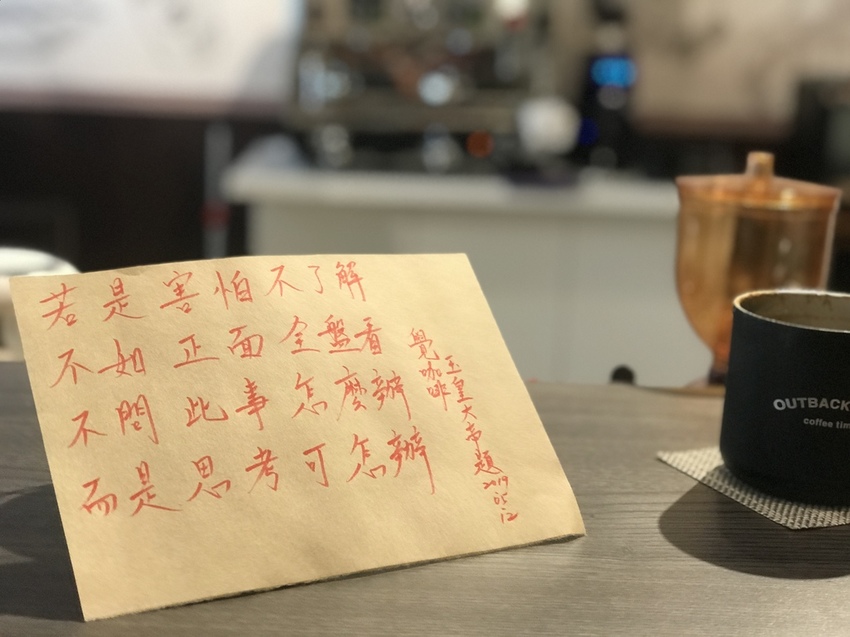 若是害怕不了解
不如正面全盤看
不問此事怎麼辦
而是思考可怎辦
覺咖啡
玉皇大帝題
2019
05
12
OUTBACK
coffee tim